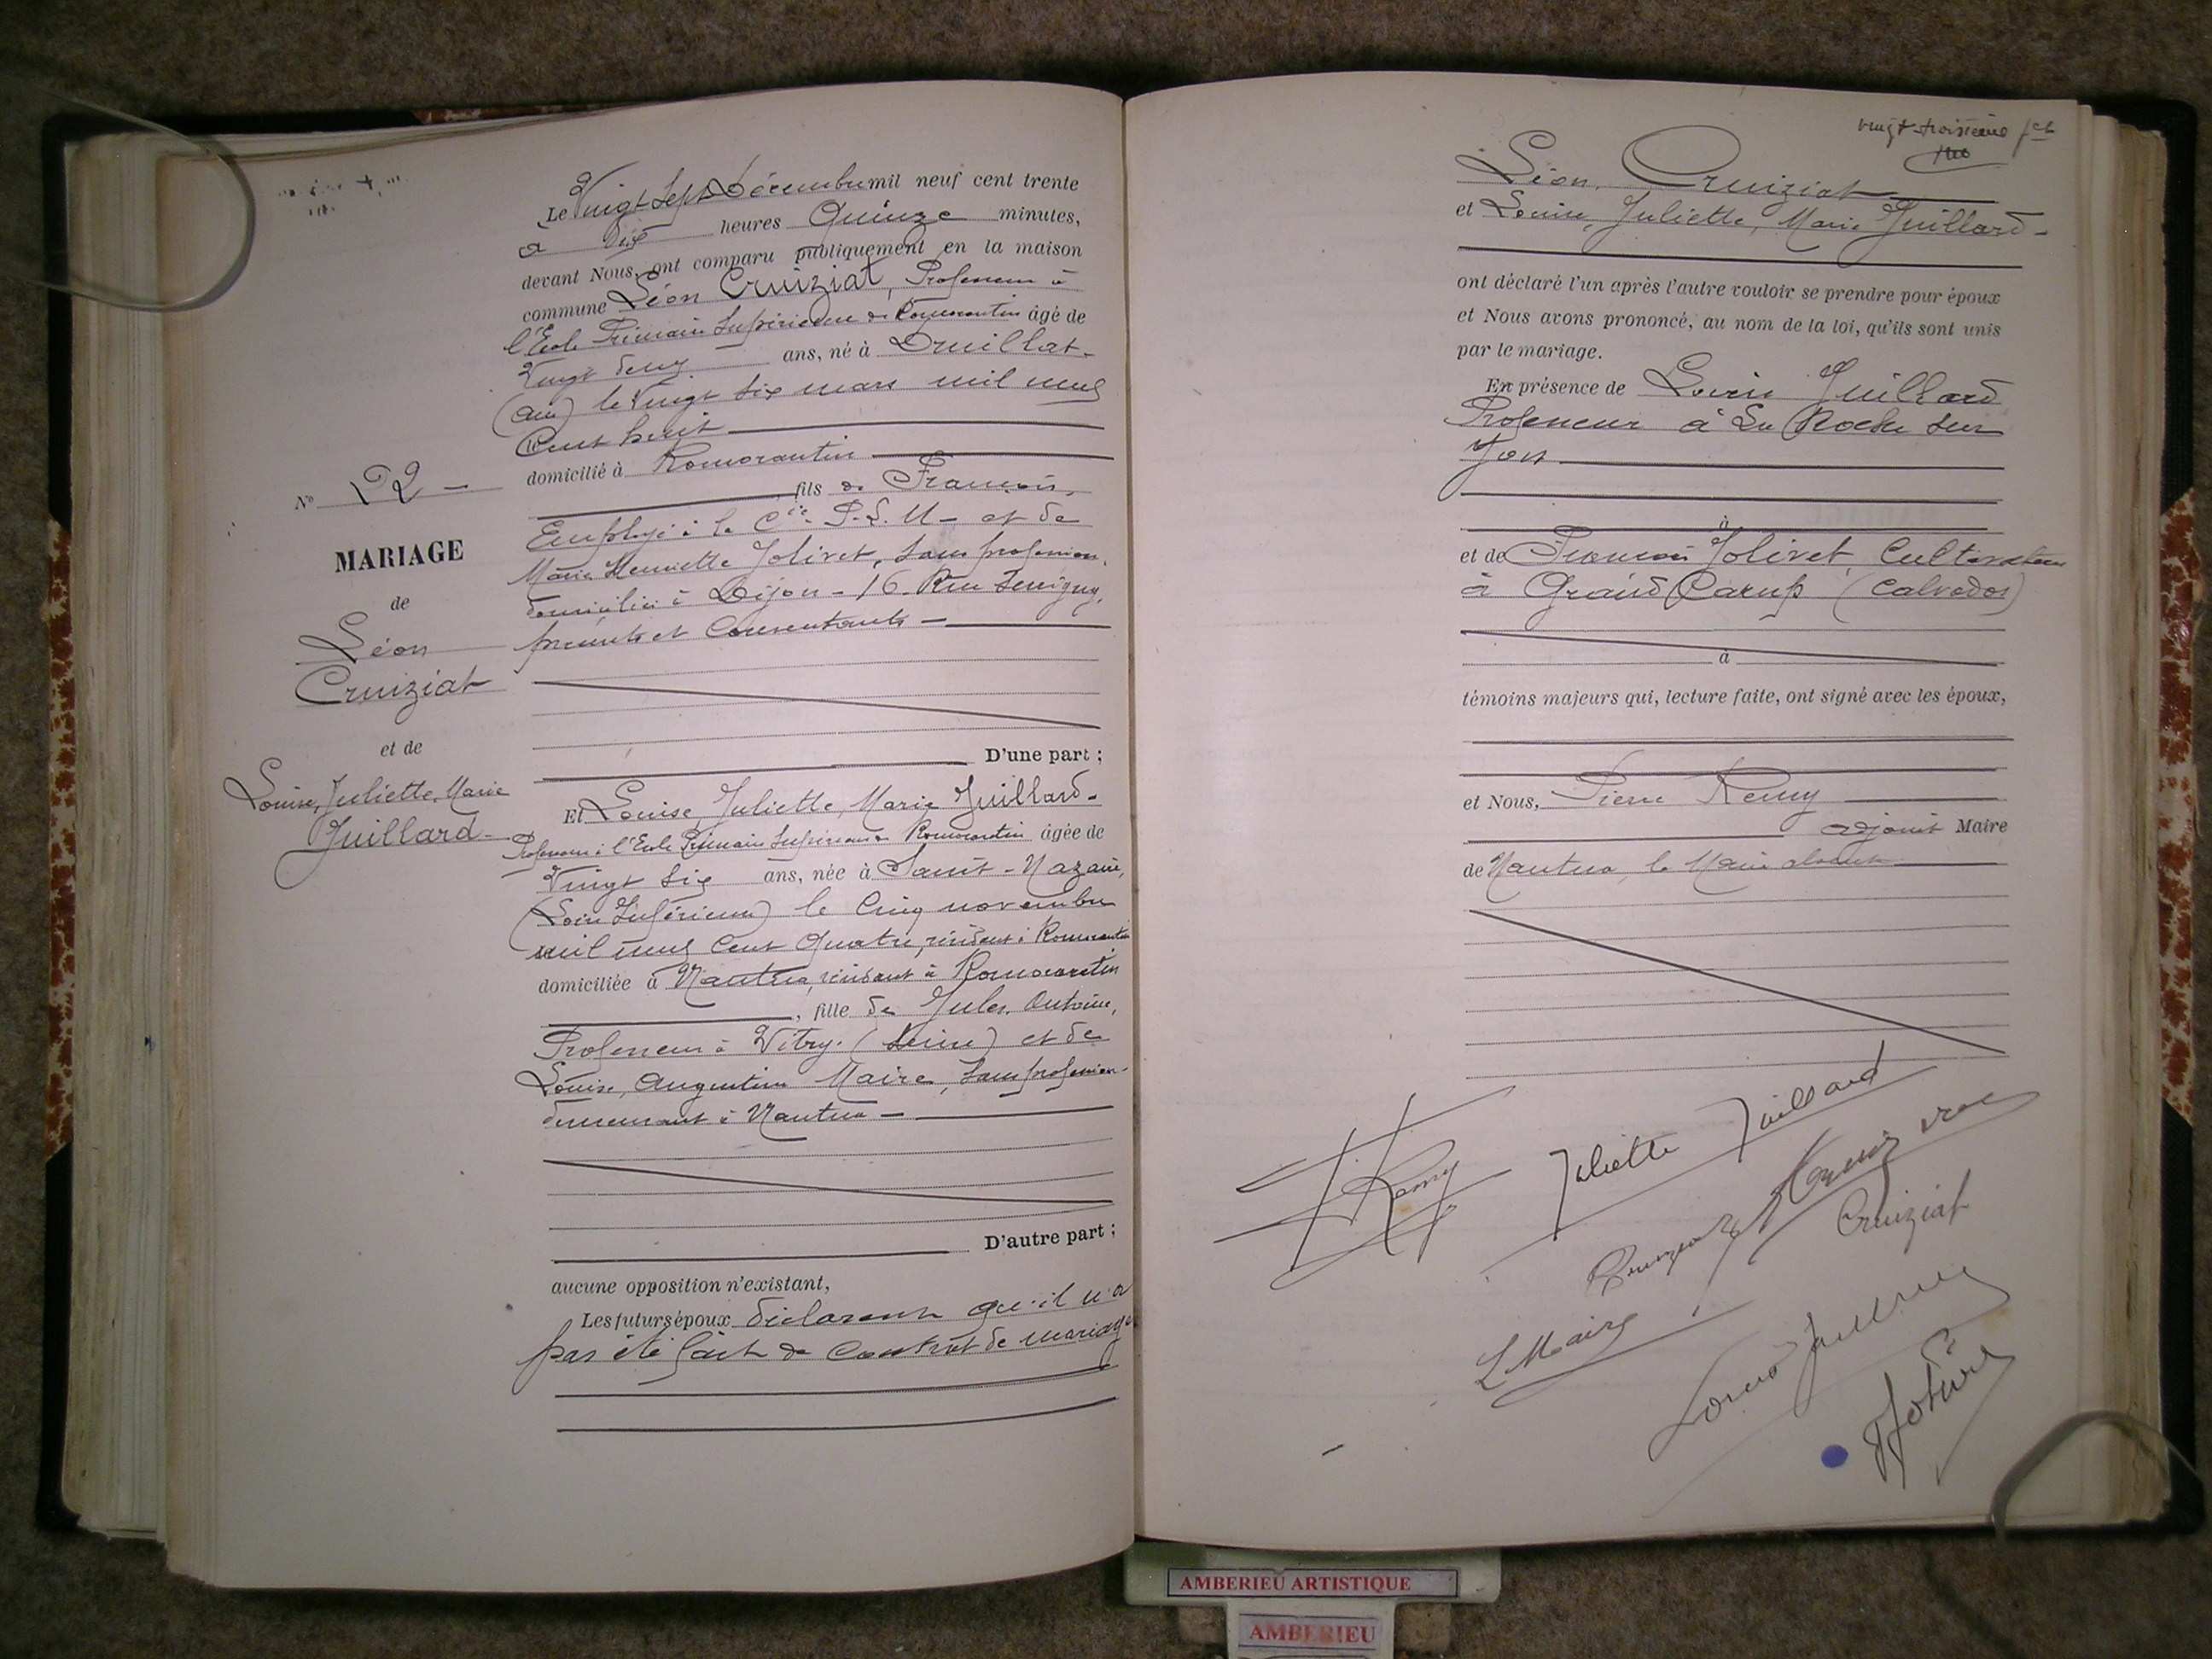 Le Vingt Sept Décembre mil neuf cent trente
à dix heures Quinze minutes,
devant Nous, ont comparu publiquement en la maison
commune Léon Cruiziat, Professeur à
l'Ecole Primaire Supérieure de Romorantin âgé de
Vingt deux ans, né à Druillat
(Ain) le Vingt Six mars mil neuf
Cent huit
domicilié à Romorantin
fils de François,
Employé à la Cie P.L.M - et de
Marie Henriette Jolivet, sans profession,
domiciliés à Dijon - 16 Rue
présents et Consentants -
N° 22 -
MARIAGE
de
Léon
Cruiziat
et de
Louise, Juliette, Marie
Juillard -
D'une part ;
Et Louise, Juliette, Marie Juillard -
Professeur à l'Ecole Primaire Supérieure de Romorantin âgée de
Vingt Six ans, née à Saint-Nazaire,
(Loire Inférieure) le Cinq novembre
mil neuf Cent Quatre, résidant à Romorantin
domiciliée à Nantua, résidant à Romorantin
, fille de Jules, Antoine,
Professeur à Vitry (Seine) et de
Louise, Augustine Maire, Sans profession -
demeurant à Nantua -
D'autre part ;
aucune opposition n'existant,
Les futurs époux déclarent qu'il n'a
pas été fait de Contrat de mariage
vingt-troisième fet
Léon Cruiziat
et Louise, Juliette, Marie Juillard -
ont déclaré l'un après l'autre vouloir se prendre pour époux
et Nous avons prononcé, au nom de la loi, qu'ils sont unis
par le mariage.
En présence de Juillard
Professeur à La Roche sur
Yon
à
et de François Jolivet, Cultivateur
à Grand Camp (Calvados)
à
témoins majeurs qui, lecture faite, ont signé avec les époux,
et Nous, Pierre Remy
adjoint Maire
de Nantua, le Maire absent
Remy
Juliette Juillard
Cruiziat
L Maire
Jolivet
AMBERIEU ARTISTIQUE
AMBERIEU